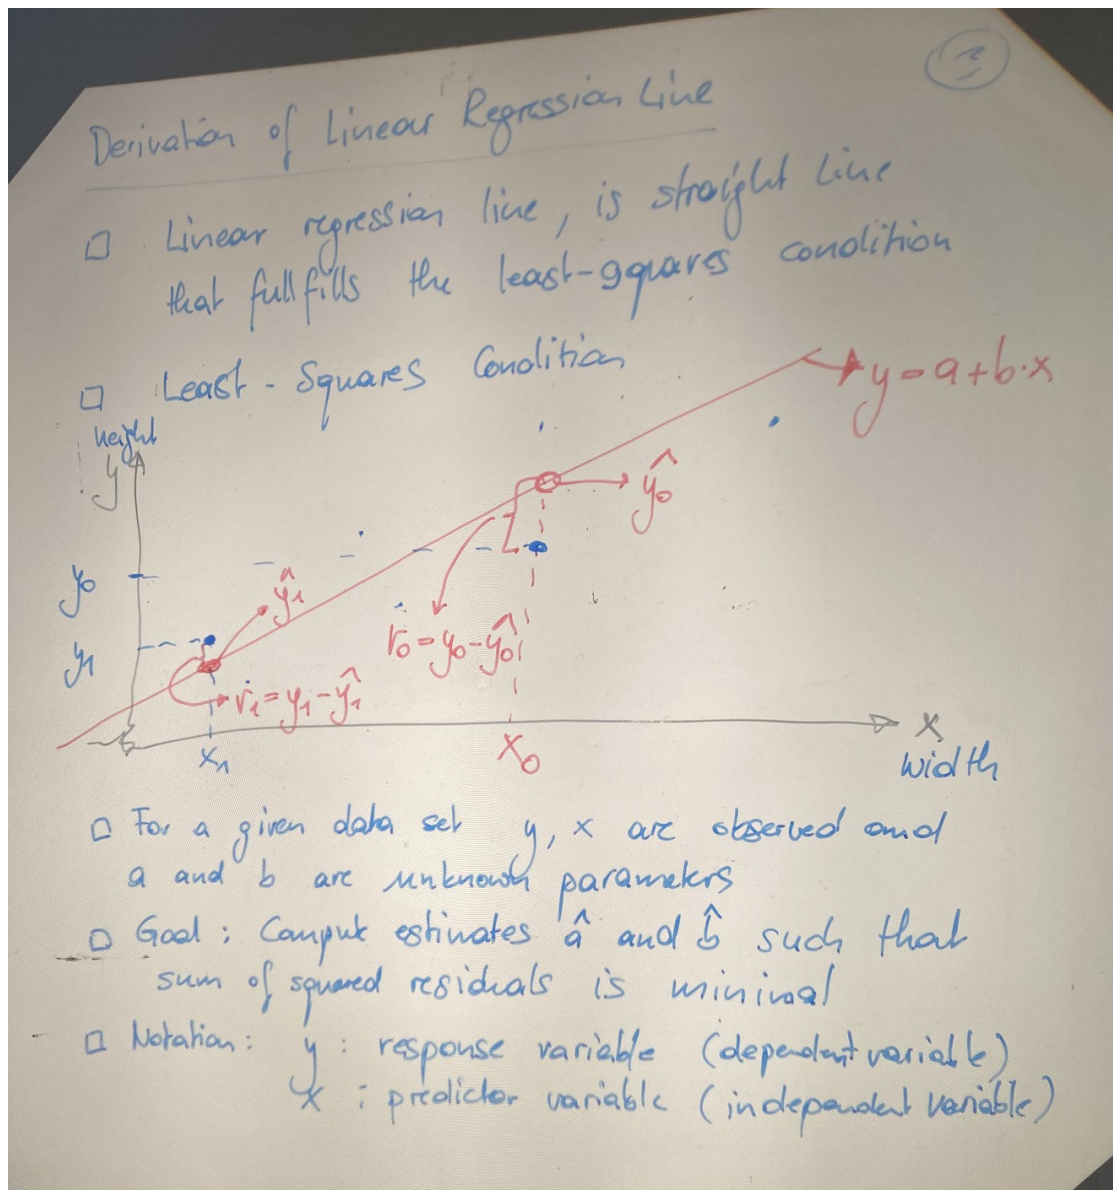 3
Derivation of Linear Regression Line
□ Linear regression line, is straight line
that fullfills the least-squares condition
□ Least-Squares Condition
y = a+b·x
height
y
ŷ₀
y₀
ŷ₁
r₀ = y₀ - ŷ₀
y₁
r₁ = y₁ - ŷ₁
x
x₁
x₀
width
□ For a given data set y, x are observed and
a and b are unknown parameters
□ Goal: Compute estimates â and b̂ such that
sum of squared residuals is minimal
□ Notation: y : response variable (dependent variable)
x : predictor variable (independent variable)